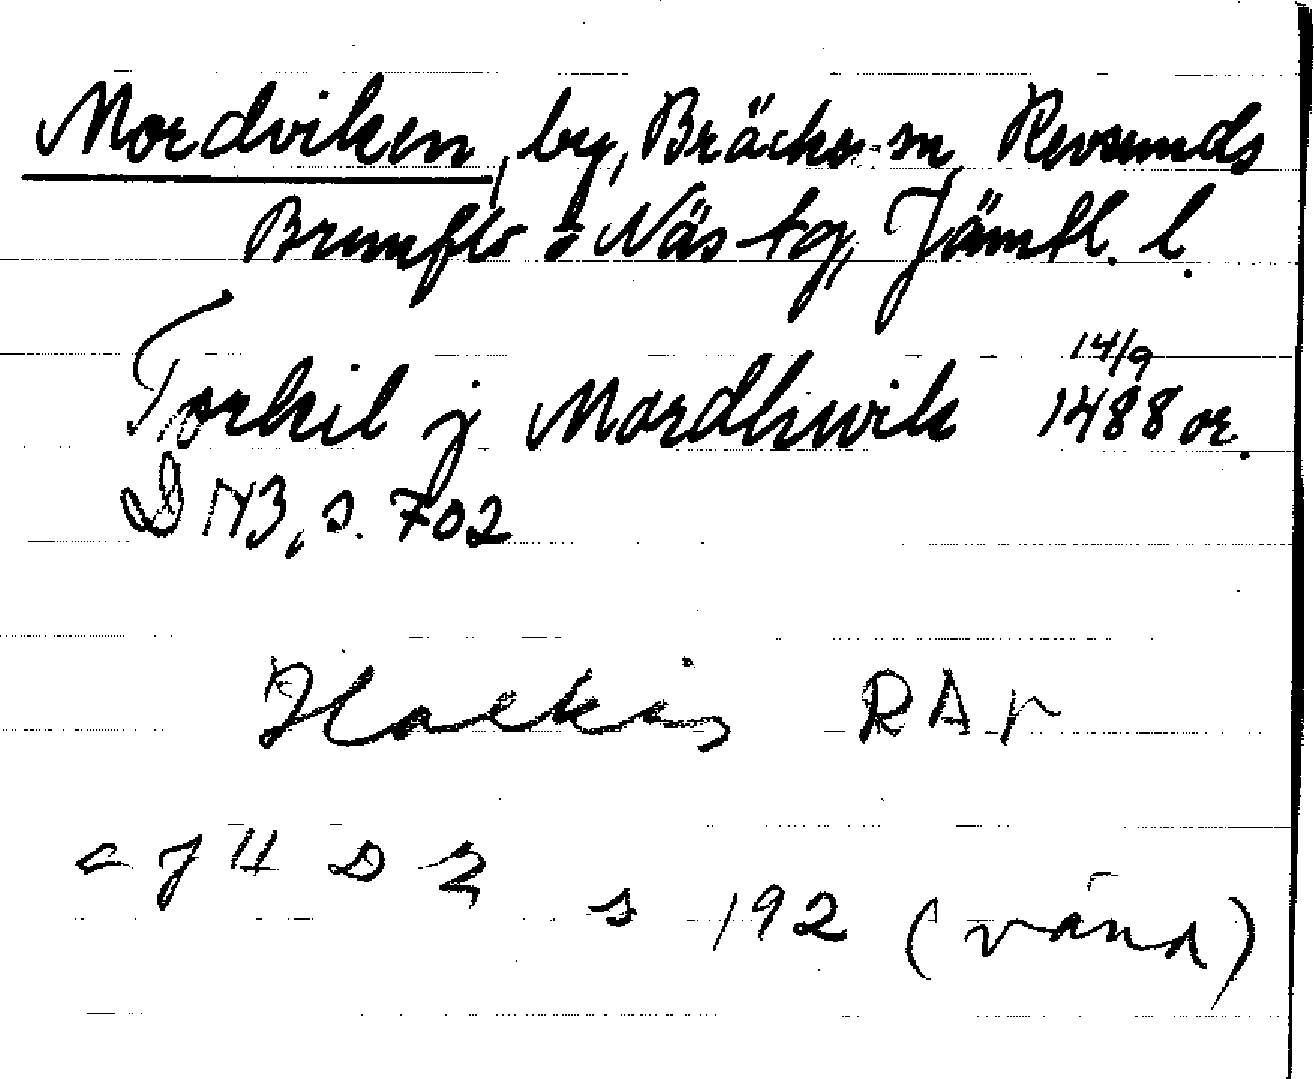 Mordviken, by, Bräcke sn, Revsunds
Brunflo o Näs tg, Jämtl. l.
Torkil j Mordhwik 14/9 1488 or.
DN 3, s. 702
RA
JHD 2 s 192 (vänd)